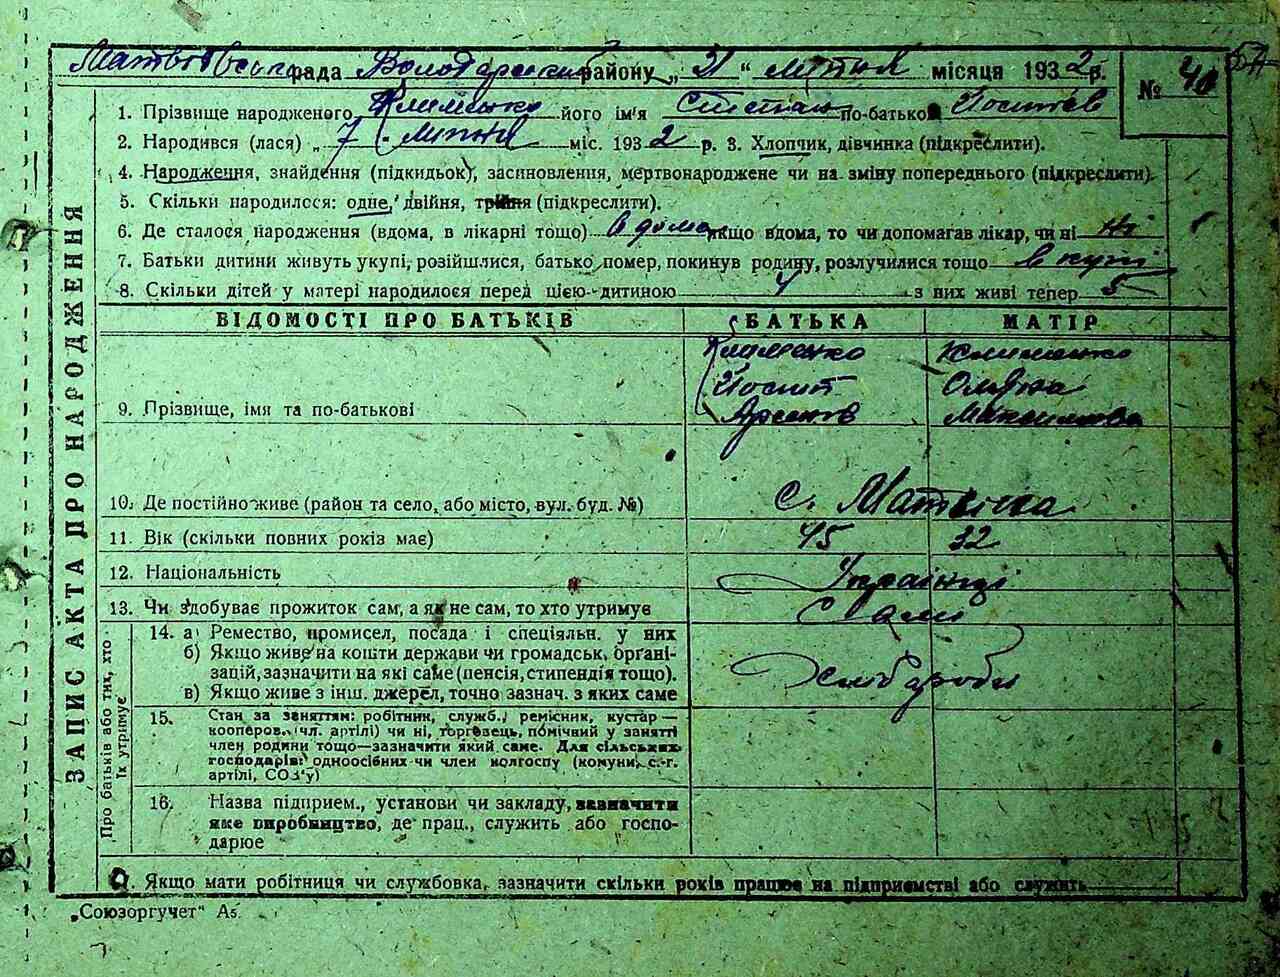 Матвіївська рада Володарського району „ 21 “ липня місяця 1932 р.
№ 40
1. Прізвище народженого Клименко його ім'я Степан по-батькові Йосипів
2. Народився (лася) „ 7 “ липня міс. 1932 р. 3. Хлопчик, дівчинка (підкреслити).
4. Народження, знайдення (підкидьок), засиновлення, мертвонароджене чи на зміну попереднього (підкреслити).
5. Скільки народилося: одне, двійня, трійня (підкреслити).
6. Де сталося народження (вдома, в лікарні тощо) вдома якщо вдома, то чи допомагав лікар, чи ні ні
7. Батьки дитини живуть укупі, розійшлися, батько помер, покинув родину, розлучилися тощо вкупі
8. Скільки дітей у матері народилося перед цією дитиною 4 з них живі тепер 5
ВІДОМОСТІ ПРО БАТЬКІВ БАТЬКА МАТІР
Клименко Клименко
Йосип
9. Прізвище, імя та по-батькові Арсенів Максимова
10. Де постійно живе (район та село, або місто, вул. буд. №) с. Матвіївка
11. Вік (скільки повних років має) 45 32
12. Національність Українці
13. Чи здобуває прожиток сам, а як не сам, то хто утримує Самі
14. а) Ремество, промисел, посада і спеціяльн. у них
б) Якщо живе на кошти держави чи громадськ. органі-
зацій, зазначити на які саме (пенсія, стипендія тощо). Хлібороби
в) Якщо живе з інш. джерел, точно зазнач. з яких саме
15. Стан за заняттям: робітник, служб., ремісник, кустар—
кооперов. (чл. артілі) чи ні, торговець, помічний у занятті
член родини тощо—зазначити який саме. Для сільських
господарів: одноосібних чи член колгоспу (комуни, с.-г.
артілі, СОЗ'у)
16. Назва підприєм., установи чи закладу, зазначити
яке виробництво, де прац., служить або госпо-
дарює
17. Якщо мати робітниця чи службовка, зазначити скільки років працює на підприємстві або служить
„Союзоргучет“ А5.
ЗАПИС АКТА ПРО НАРОДЖЕННЯ
Про батьків або тих, хто
їх утримує